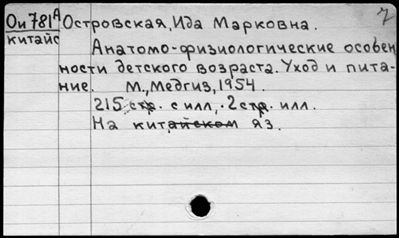 Ои 781А Островская, Ида Марковна. 7
китайс
Анатомо-физиологические особен
ности детского возраста. Уход и пита-
ние. М., Медгиз, 1954.
215 стр. с илл, 2 стр. илл.
На китайском яз.